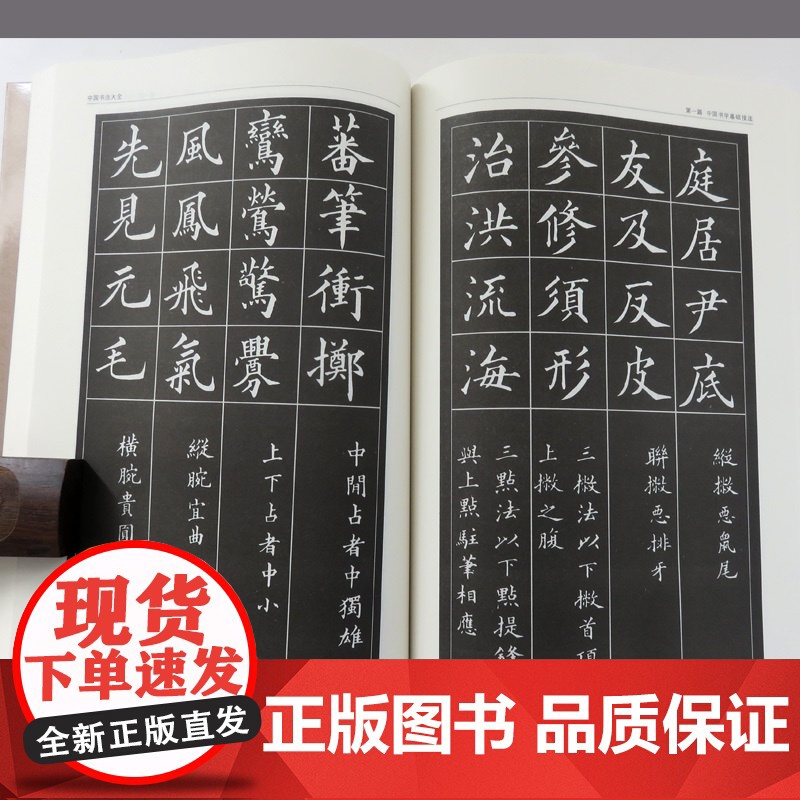 中国书法大全
第一篇 中国书学基础技法
庭居尹底
縱撇惡鼠尾
友及反皮
聯撇惡排牙
參修須形
三撇法以下撇首頂
上撇之腹
治洪流海
三點法以下點提鋒
與上點駐筆相應
蕃筆衝擲
中間占者中獨雄
鸞鶯驚爨
上下占者中小
風鳳飛氣
縱腕宜曲
先見元毛
橫腕貴圓
现货
下单速发
全新正版直发
正版图书 品质保证